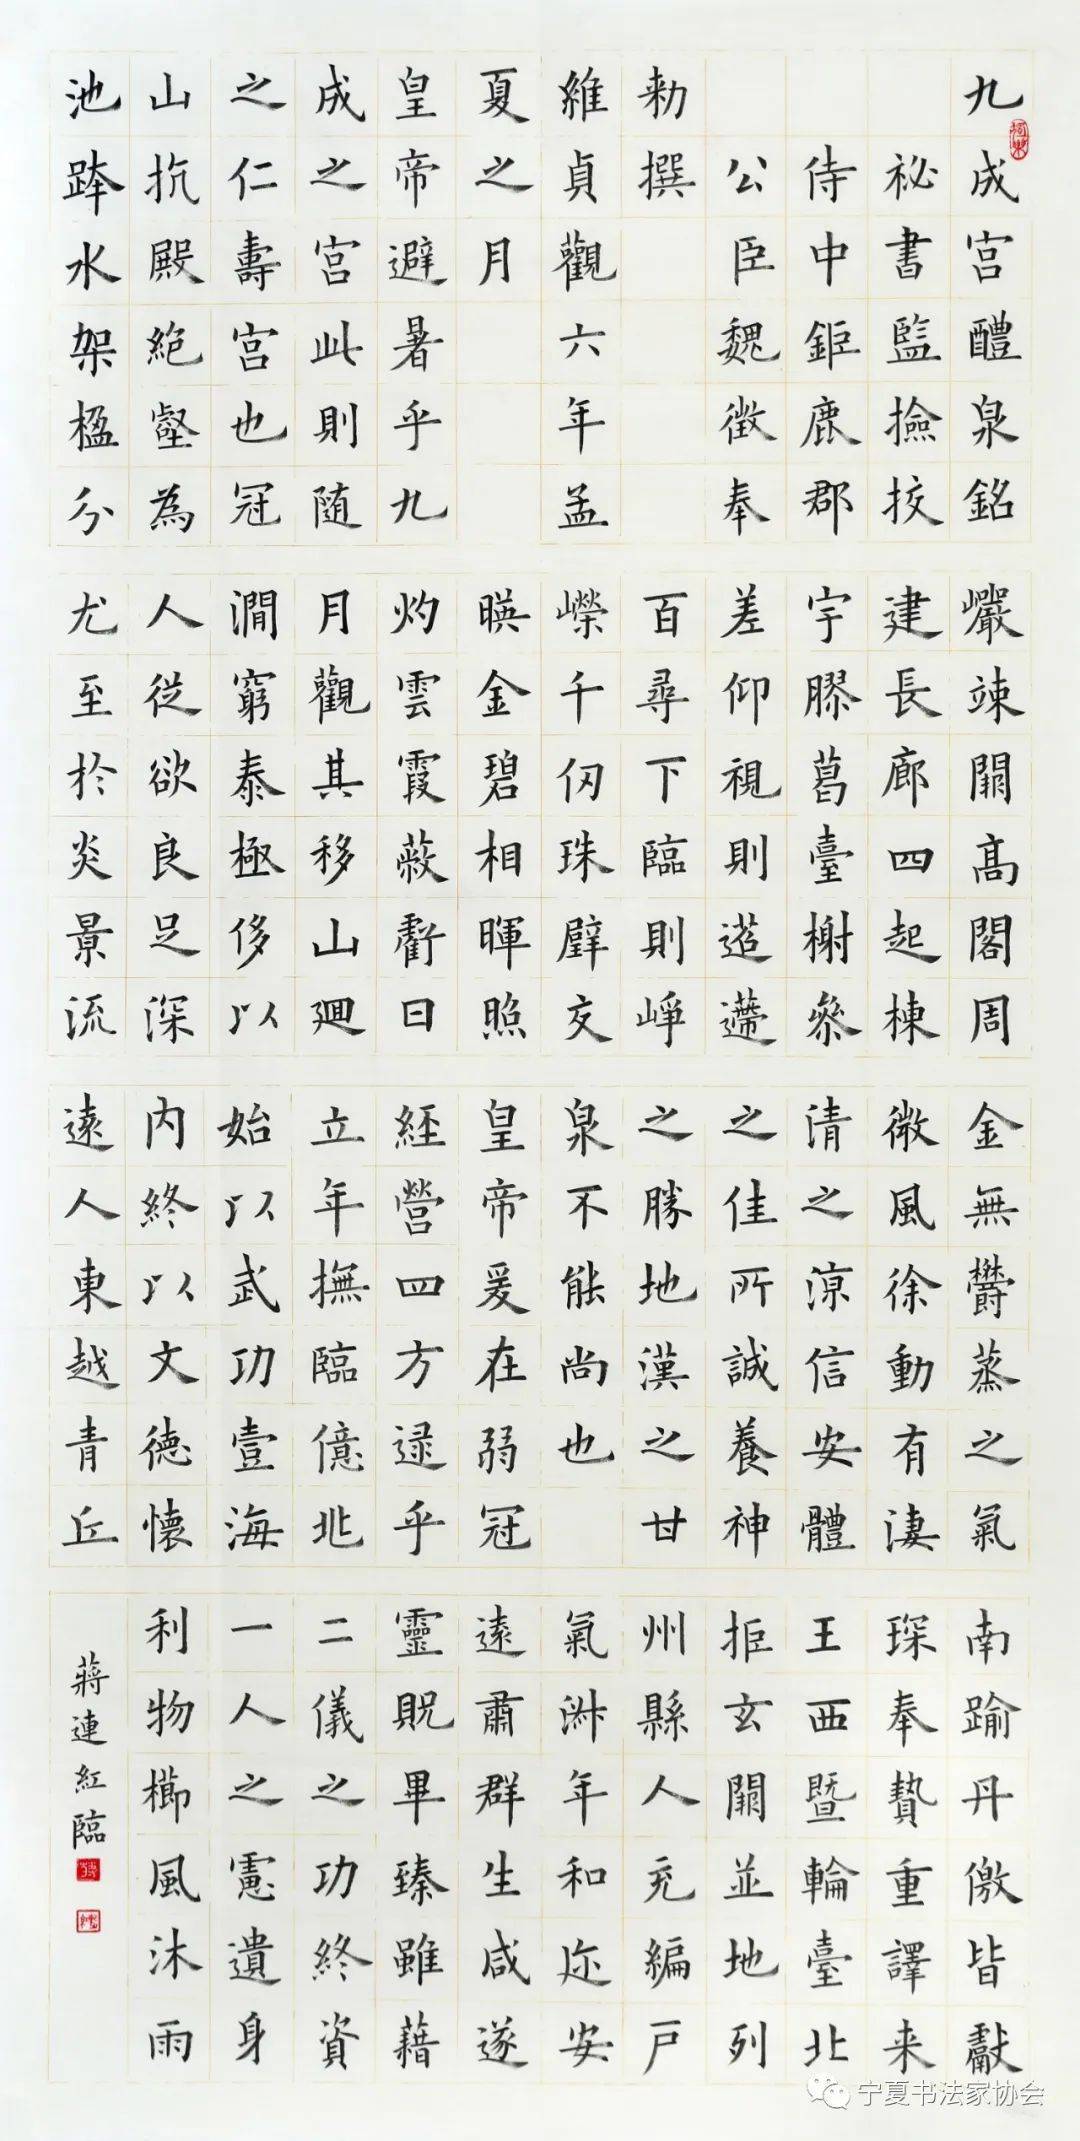 九成宫醴泉銘
祕書監撿挍
侍中鉅鹿郡
公臣魏徵奉
勑撰
維貞觀六年孟
夏之月
皇帝避暑乎九
成之宫此則随
之仁壽宫也冠
山抗殿絶壑為
池跨水架楹分
巖竦闕高閣周
建長廊四起棟
宇膠葛臺榭叅
差仰視則迢遰
百尋下臨則峥
嶸千仞珠璧交
暎金碧相暉照
灼雲霞蔽虧日
月觀其移山廻
澗窮泰極侈以
人從欲良足深
尤至於炎景流
金無欝蒸之氣
微風徐動有淒
清之涼信安體
之佳所誠養神
之勝地漢之甘
泉不能尚也
皇帝爰在弱冠
經營四方逮乎
立年撫臨億兆
始以武功壹海
内終以文德懷
遠人東越青丘
南踰丹儌皆獻
琛奉贄重譯来
王西暨輪臺北
拒玄闕並地列
州縣人充編戶
氣淑年和迩安
遠肅群生咸遂
靈貺畢臻雖藉
二儀之功終資
一人之慮遺身
利物櫛風沐雨
蔣連紅臨
宁夏书法家协会